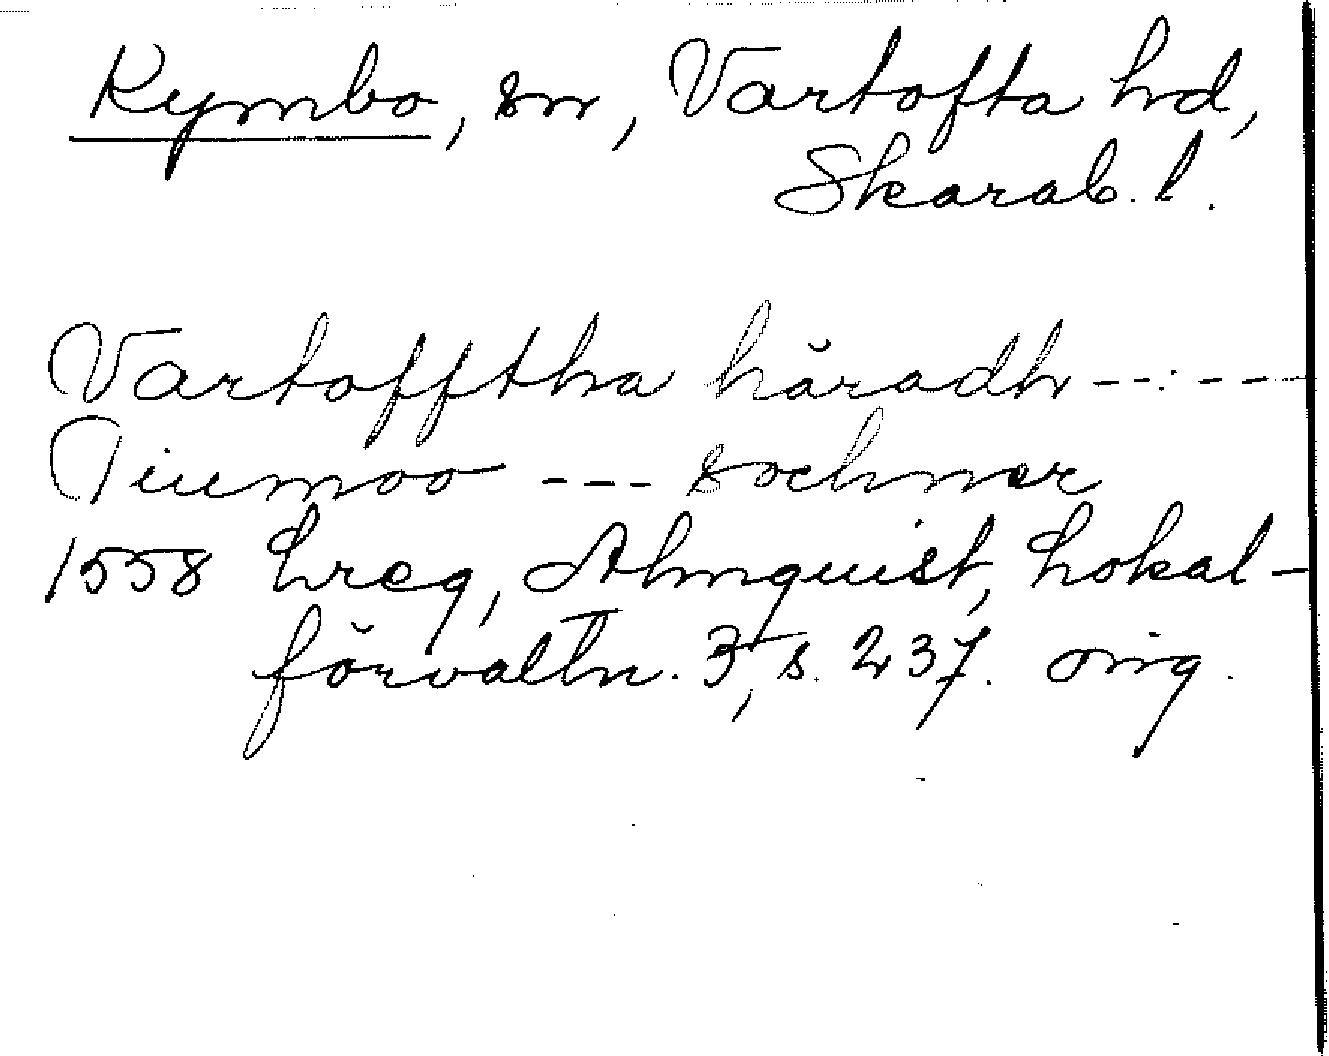 Kymbo, sn, Vartofta hd,
Skarab. l.
Vartofftha häradh -----
Tiumoo --- sochner
1558 Lreg, Almquist, Lokal-
förvaltn. 3, s. 237. orig.